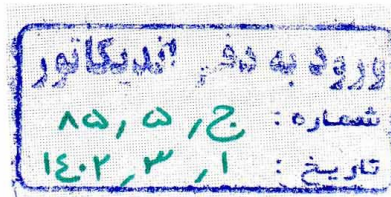 ورود به دفتر اندیکاتور
شماره : ج / ۵ / ۸۵
تاریخ : ۱ / ۳ / ۱۴۰۲